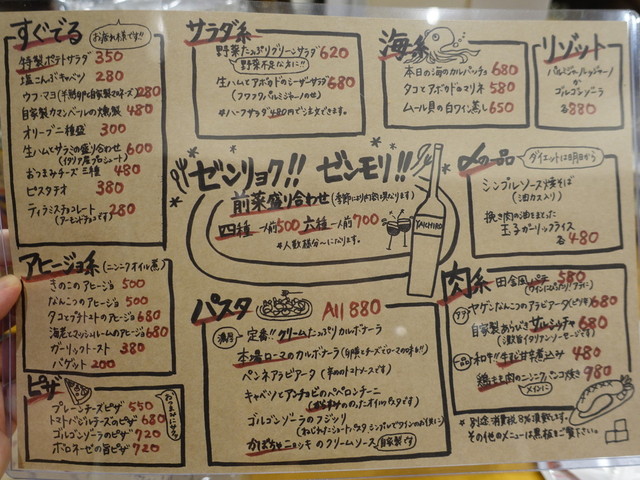 すぐでる
お疲れ様です!!
特製ポテトサラダ 350
塩こんぶキャベツ 280
ウフ・マヨ(半熟卵と自家製マヨネーズ) 280
自家製カマンベールの燻製 480
オリーブ二種盛 300
生ハムとサラミの盛り合わせ 600
(イタリア産プロシュート)
おつまみチーズ三種 480
ピスタチオ 380
ティラミスチョコレート 280
(アーモンドチョコです)
サラダ系
野菜たっぷりグリーンサラダ 620
野菜不足な方に!!
生ハムとアボカドのシーザーサラダ 680
(フワフワパルミジャーノのせ)
#ハーフサラダ480円でご注文できます。
海系
本日の海のカルパッチョ 680
タコとアボカドのマリネ 580
ムール貝の白ワイン蒸し 650
リゾット
パルミジャーノレッジャーノ
か
ゴルゴンゾーラ
各880
ゼンリョク!! ゼンモリ!!
前菜盛り合わせ(季節により内容異なります)
四種 一人前500 六種 一人前700
#人数様分〜になります。
YAICHIRO
〆の一品
ダイエットは明日から
シンプルソース焼そば
(油カス入り)
挽き肉の油をまとった
玉子ガーリックライス
各480
アヒージョ系(ニンニクオイル煮)
きのこのアヒージョ 500
なんこつのアヒージョ 500
タコとプチトマトのアヒージョ 680
海老とマッシュルームのアヒージョ 680
ガーリックトースト 380
バゲット 200
ピザ
おつまみにサク
プレーンチーズピザ 550
トマトバジルチーズのピザ 680
ゴルゴンゾーラのピザ 720
ボロネーゼの宮ピザ 720
パスタ All 880
満月 定番!!クリームたっぷりカルボナーラ
本場ローマのカルボナーラ(卵黄とチーズでローマの味を!!)
ペンネアラビアータ(辛めのトマトソースです)
キャベツとアンチョビのペペロンチーニ
(からみののったオイルパスタです)
ゴルゴンゾーラのフジッリ
(ねじれたショートパスタ、シンプルでワインのお供に)
かぼちゃニョッキのクリームソース 自家製です
肉系
田舎風パテ 580
ワインにぴったり!
ヤゲンなんこつのアラビアータ(ピリ辛) 680
自家製あらびきサルシッチャ 680
(漢飯イタリアンソーセージです)
一品 和牛!!牛すじ甘辛煮込み 480
鶏もも肉のニンニクパン粉焼き 980
メインに
*別途消費税8%頂戴します。
その他のメニューは黒板をご覧下さい。